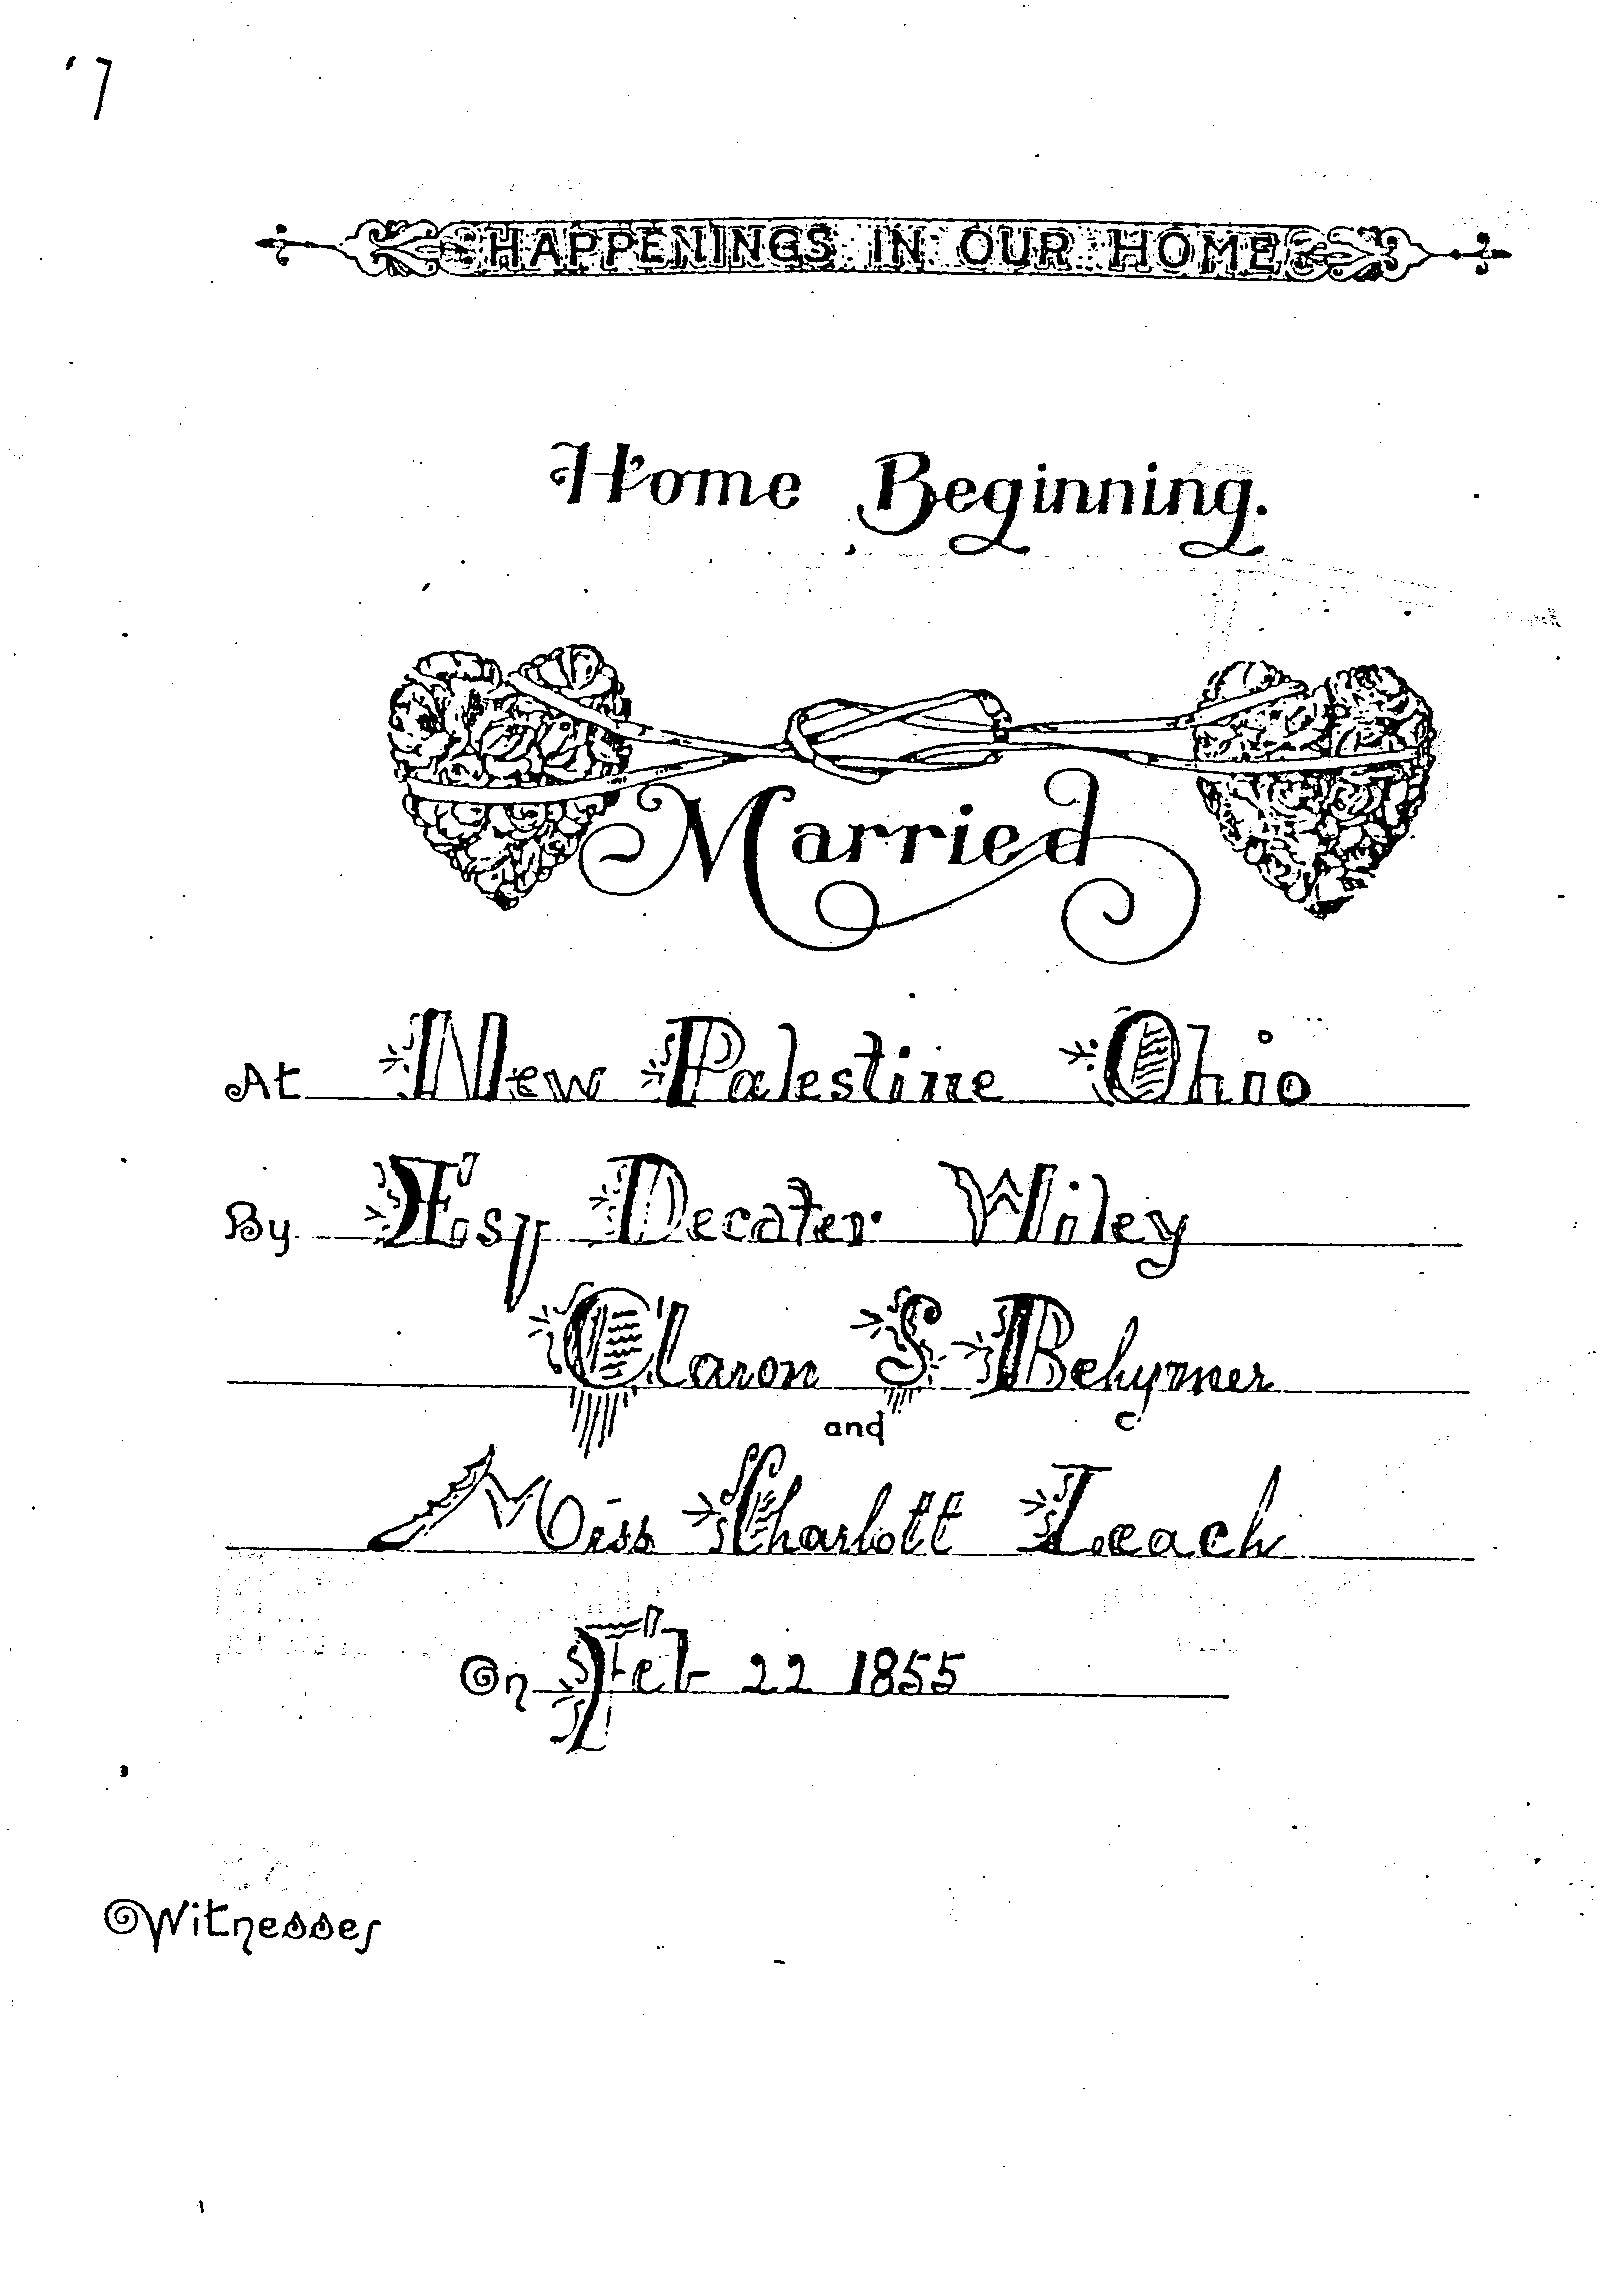 7
HAPPENINGS IN OUR HOME
Home Beginning.
Married
At New Palestine Ohio
By Esq Decater Wiley
Claron S Behymer
and
Miss Charlott Leach
On Feb 22 1855
Witnesses